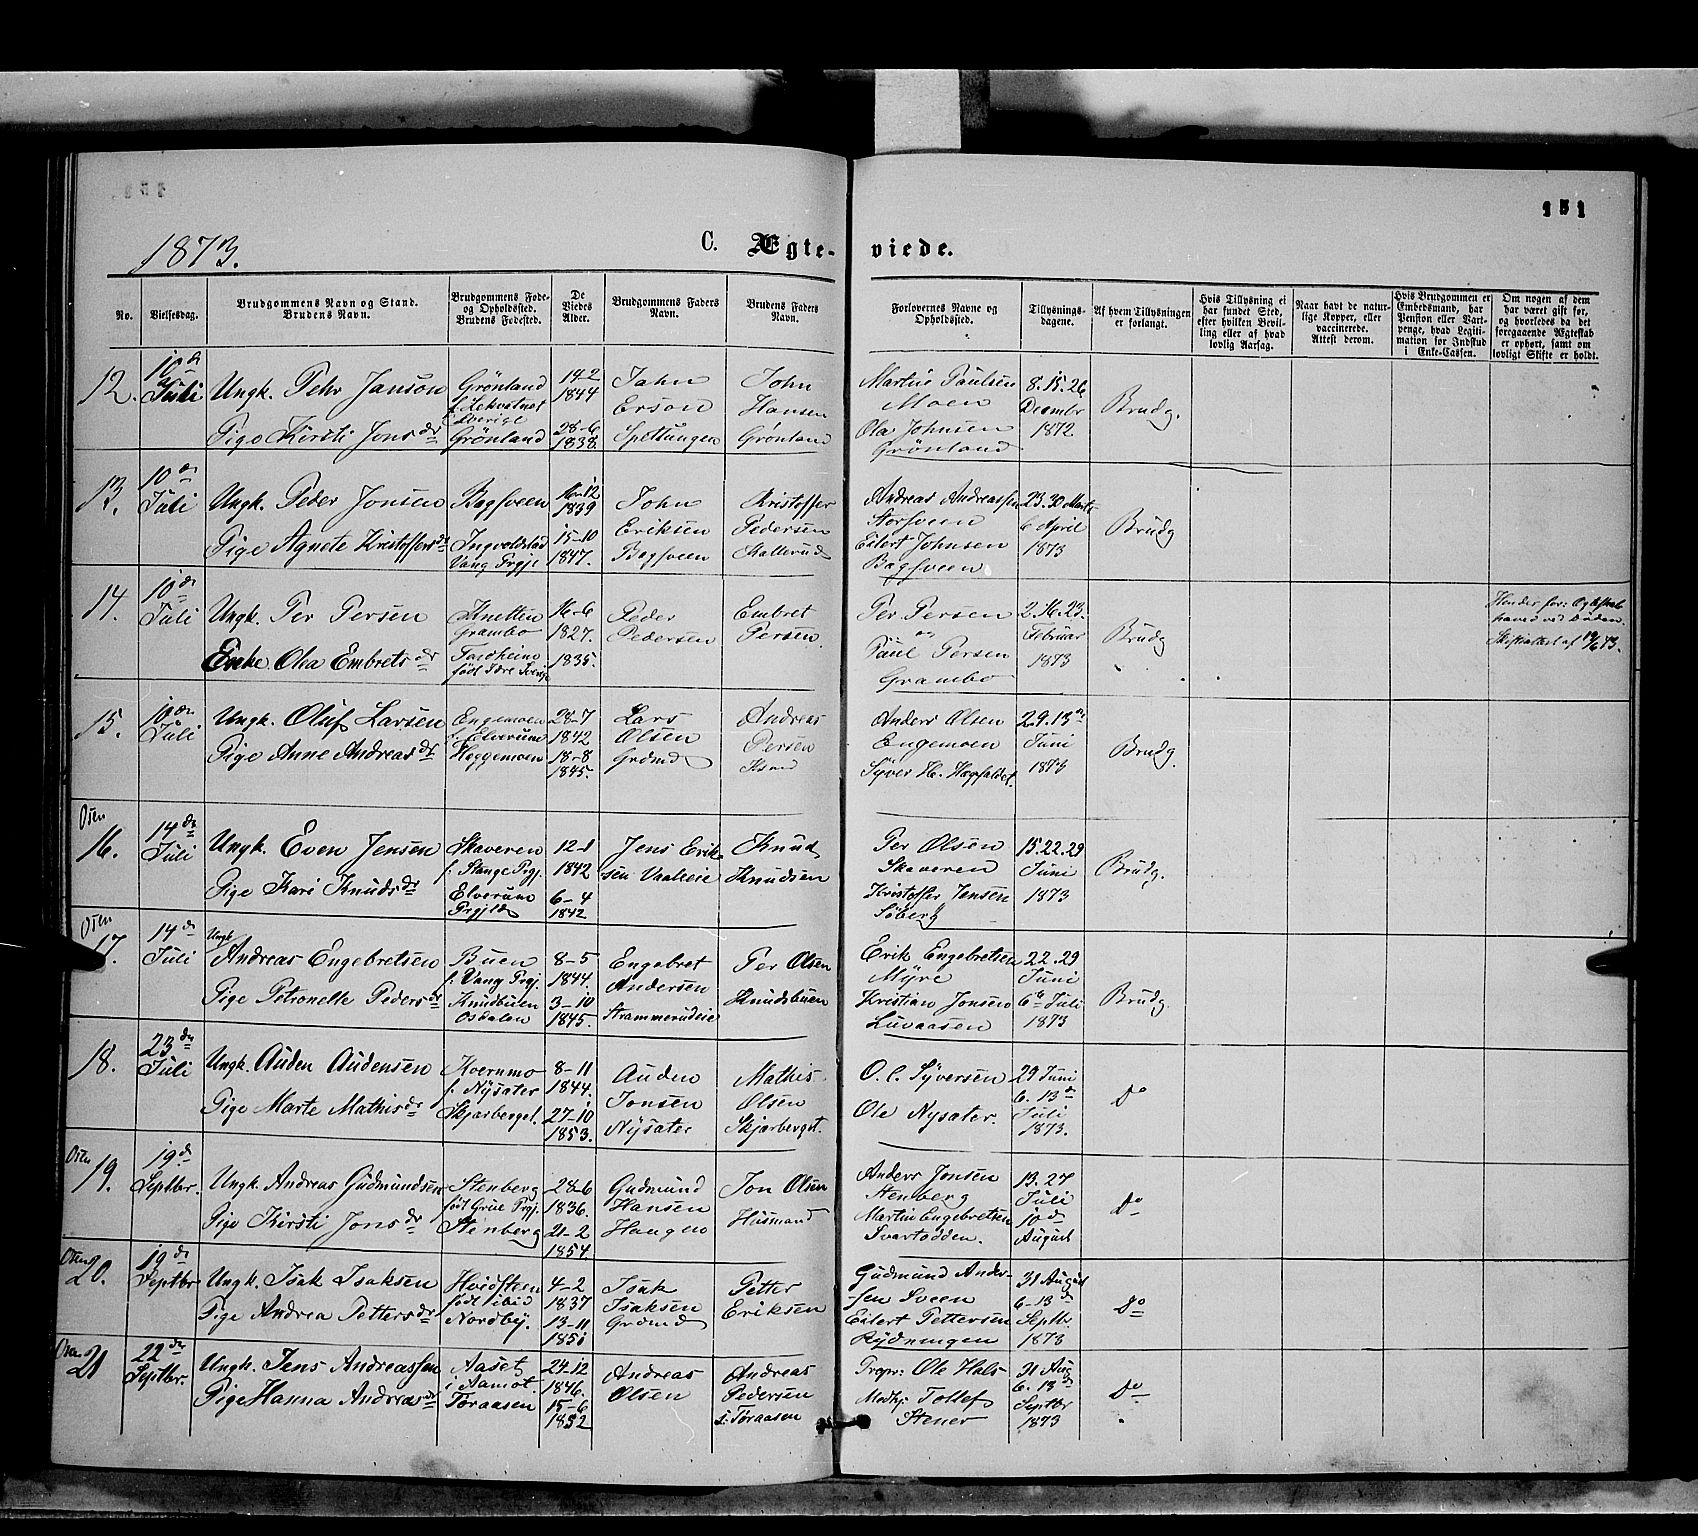 151
1873.
C. Ægte-viede.
No.
Vielsesdag.
Brudgommens Navn og Stand.
Brudens Navn.
Brudgommens Føde- og Opholdssted.
Brudens Fødested.
De Viedes Alder.
Brudgommens Faders Navn.
Brudens Faders Navn.
Forlovernes Navne og Opholdssted.
Tillysnings-dagene.
Af hvem Tillysningen er forlangt.
Hvis Tillysning ei har fundet Sted, efter hvilken Bevilling eller af hvad lovlig Aarsag.
Naar havt de naturlige Kopper, eller vaccinerede. Attest derom.
Hvis Brudgommen er Embedsmand, har Pension eller Vartpenge, hvad Legitimation for Indskud i Enke-Cassen.
Om nogen af dem har været gift før, og hvorledes da det foregaaende Ægteskab er ophørt, samt om lovligt Skifte er holdt.
12.
10de Juli
Ungk. Pehr Janson
Pige Kirsti Jonsdr
Grönland
f. Lekvatnet
Sverige
Grönland
14-2
1844
28-6
1838.
Jahn
Erson
Spettungen
John
Hansen
Grönland
Martin Paulsen
Moen
Ola Johnsen
Grönland
8. 15. 26
Decembr
1872
Brudg.
13.
10de
Juli
Ungk. Peder Jonsen
Pige Agnete Kristoffersdr
Bagsveen
Ingvoldstad
Vang Prgj.
16-12
1839
15-10
1847.
John
Eriksen
Bagsveen
Kristoffer
Pedersen
Kallerud
Andreas Andreassen
Storsveen
Eilert Johnsen
Bagsveen
23. 30 Marts
6 April
1873
Brudg
14.
10de
Juli
Ungk. Per Persen
Enke Olea Embretsdr
Knetten
Grambo
Fardheim
16-6
1827.
1835.
Peder
Pedersen
Embret
Persen
Per Persen
og
Paul Persen
Grambo
2. 16. 23.
Februar
1873
Brudg
15.
10de
Juli
Ungk. Oluf Larsen
Pige Anne Andreasdr
Engemoen
f. Elverum
Heggemoen
28-7
1842
18-8
1845.
Lars
Olsen
Grdmd
Andreas
Persen
Anders Olsen
Engemoen
Syver H. Hagfaldet.
2. 9. 13de
Juni
1873
Brudg.
Osen
16.
14de
Juli
Ungk. Even Jensen
Pige Kari Knudsdr
Skaveren
f. Stange Prgj.
Elverum
Prgjld
12-1
1842
6-4
1842
Jens Erik-
sen Vaaleeie
Knud
Knudsen
Per Olsen
Skaveren
Kristoffer Jensen
Söberg
15. 22. 29
Juni
1873
Brudg.
Osen
17.
14de
Juli
Ungk.
Andreas Engebretsen
Pige Petronelle Pedersdr
Buen
f. Vang Prgj.
Knudbuen
Osdalen
8-5
1844.
3-10
1845.
Engebret
Andersen
Strammerudeie
Per Olsen
Knudsbuen
Erik Engebretsen
Myre
Kristian Jonsen
Luvaasen
22. 29
Juni
6te Juli
1873
Brudg.
18.
23de
Juli
Ungk. Auden Audensen
Pige Marte Mathisdr
Kvernmo
f. Nysater
Skjærberget.
8-11
1844.
27-10
1853.
Auden
Jonsen
Nysater
Mathis
Olsen
Skjærberget.
O. C. Syversen
Ole Nysater.
29 Juni
6. 13de
Juli
1873.
Do
Osen
19.
19de
Septbr.
Ungk. Andreas Gudmundsen
Pige Kirsti Jonsdr
Stenberg
född Grue Prgj.
Stenberg
28-6
1836.
21-2
1854.
Gudmund
Hansen
Haugen
Jon Olsen
Husmand
Anders Jonsen
Stenberg
Martin Engebretsen
Svartodden.
13. 27
Juli
10de
August
Do
Osen
20.
19de
Septbr
Ungk. Isak Isaksen
Pige Andrea Pettersdr
Hvidsteen
född ibid
Nordby.
4-2
1837
13-11
1851
Isak
Isaksen
Grdmd
Petter
Eriksen
Gudmund Ander-
sen Sveen
Eilert Pettersen
Rydningen
31 August
6-13de
Septbr.
1873
Do
Osen
21
22de
Septbr.
Ungk. Jens Andreassen
Pige Hanna Andreasdr
Aaset
i Aamot.
Töraasen
24-12
1846.
15-6
1852
Andreas
Olsen
Andreas
Pedersen
i Töraasen
Propr: Ole Hals
Medhj: Tollef
Stener
31 Aug
6. 13de
Septbr
1873
Do